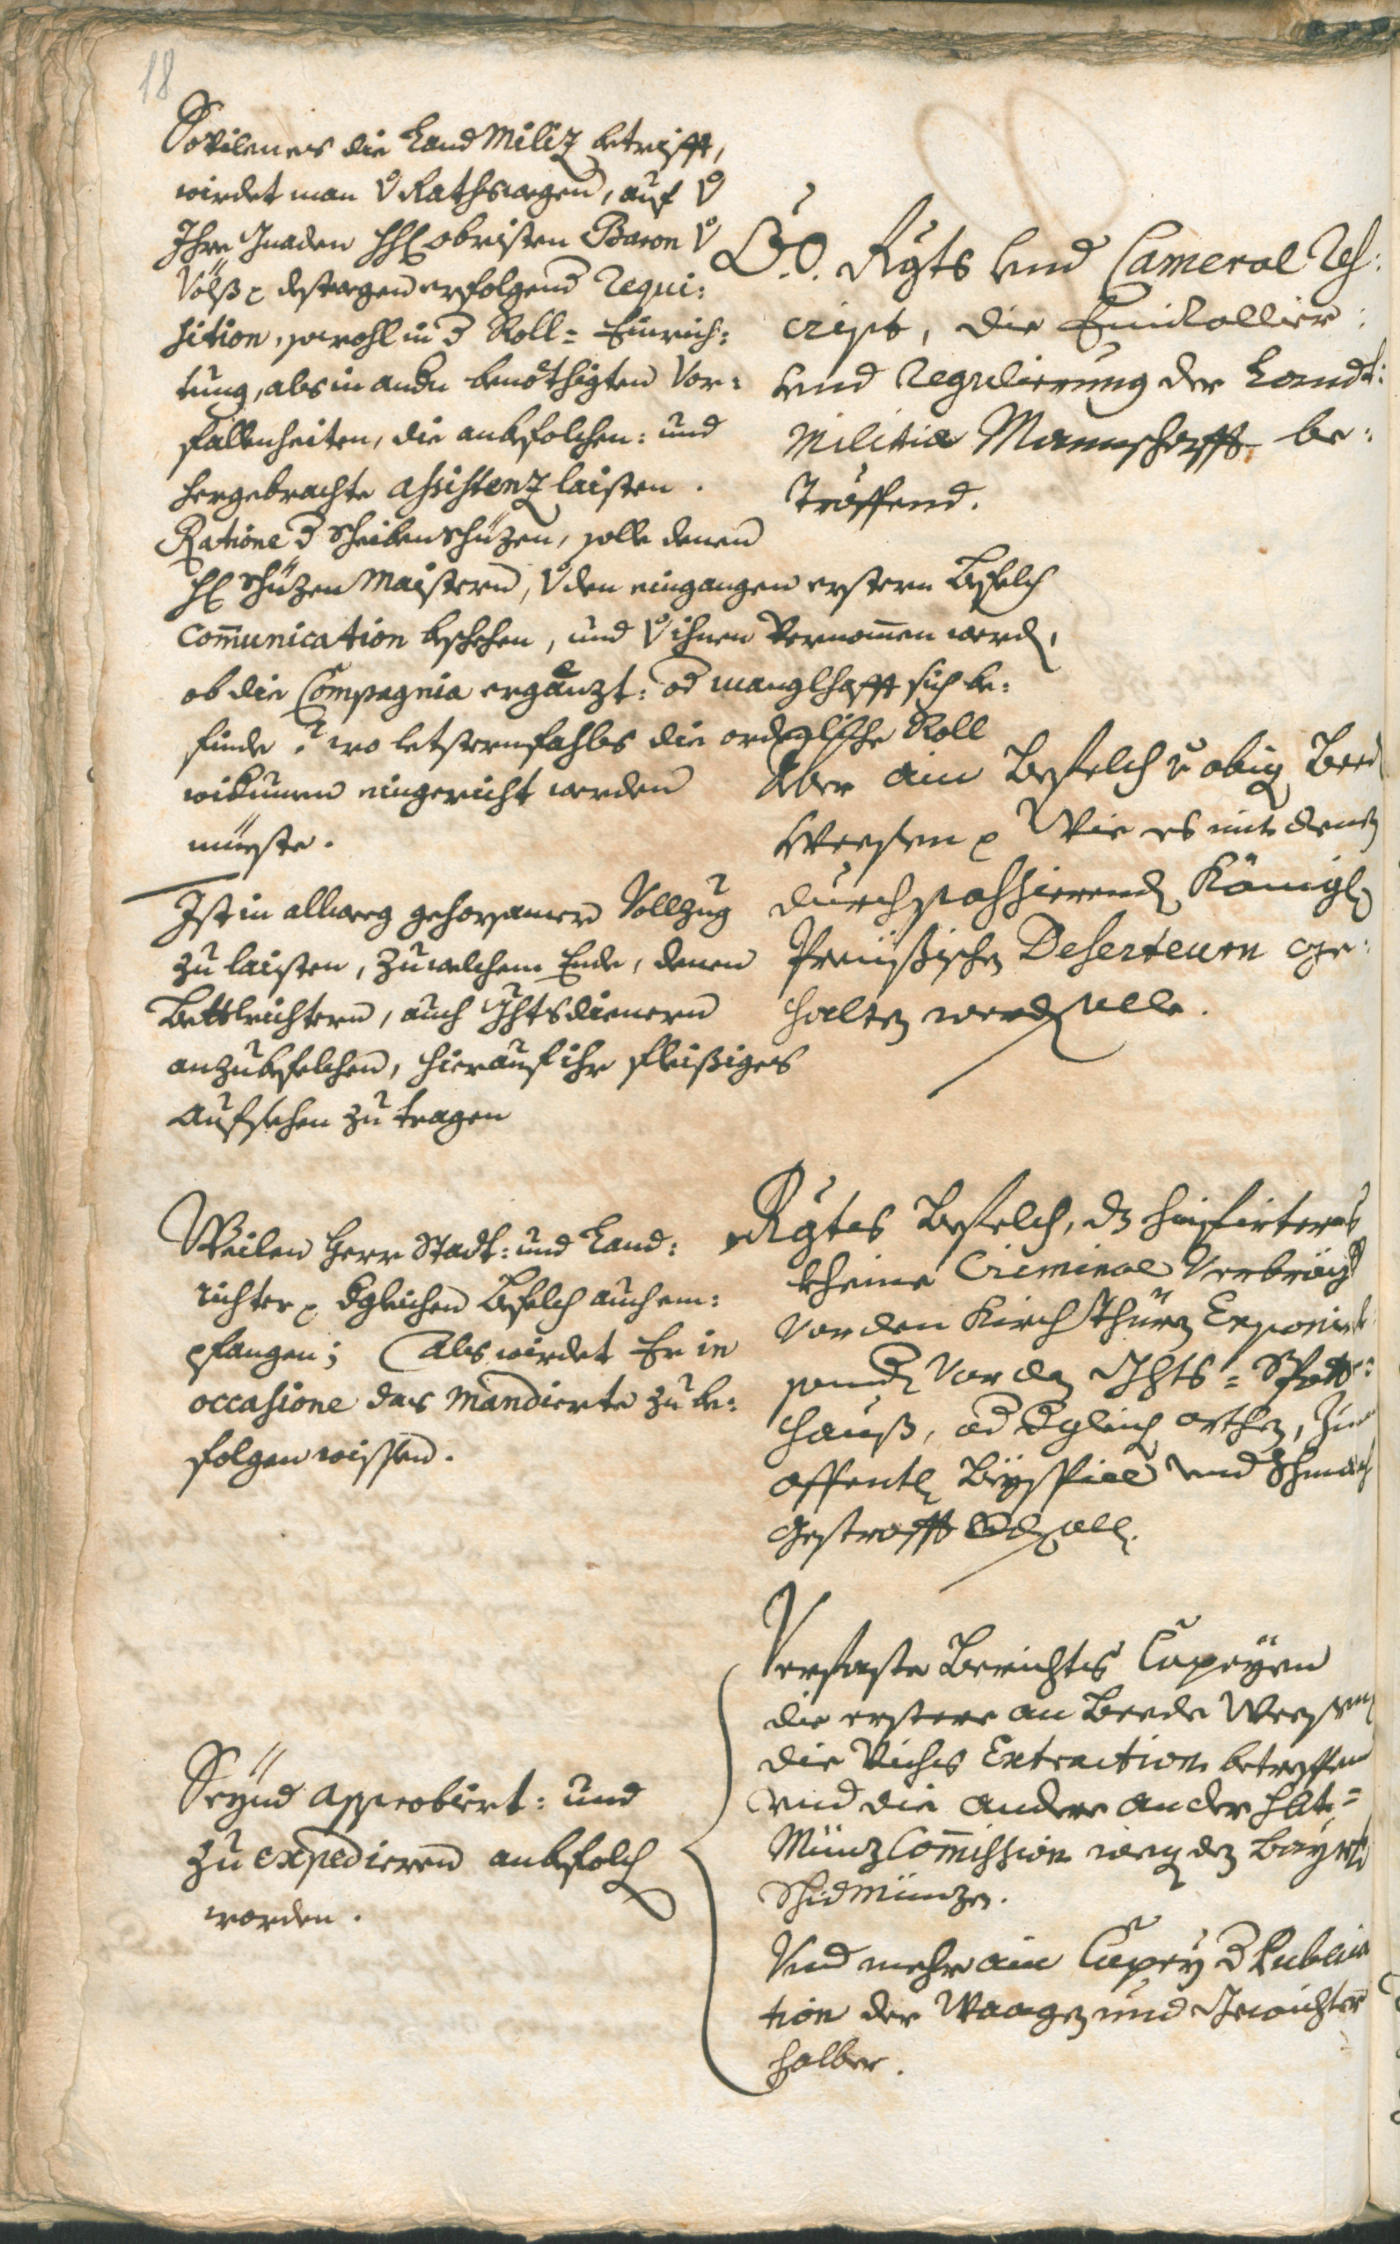 18
Sovilen es die Land Miliz betrifft,
wirdet man v Rathswegen, auf v
Ihro Gnaden HH obristen Baron v
Völß p. destwegen erfolgend requi:
sition, sowohl in d Roll= Einrich:
tung, als in andn benöthigten Vor:
fallenheiten, die anbefolchen: und
hergebrachte assistenz laisten.
Ratione d Scheibenschüzen, solle denen
H Schüzen Maistern, v den eingangen erstern Befelch
communication beschehen, und v ihnen vernommen werd,
ob die Compagnia ergänzt: od manglhafft sich be:
finde, wo letsternfahls die ordentliche Roll
widumen eingericht werden
müeste.
Ist in allweeg gehorsamer Vollzug
zu laisten, zu welchem Ende, denen
Bettlrichtern, auch Ghtsdienern
anzubefelchen, hierauf ihr fleißiges
Aufsehen zu tragen
Weilen Herr Stadt: und Land:
richter p. dgleichen Befelch auch em:
pfangen; Als wirdet Er in
occasione das Mandierte zu be:
folgen wissen.
Seynd approbiert: und
zu expedieren anbefolch
worden.
O.Ö. Rgts und Cameral Res:
cript, die Einrollier:
und Regulierung der Landt:
Militia Mannschafft be:
treffend.
Aber ain Befelch v obig Beed
Weesen p. Wie es mit denen
durchpassierend Königl
Preüssischen Deserteurn ge:
halten werd solle.
Rgts Befelch, dz hinfirters
kheine Criminal Verbröch
vor den Kirchthürn Exponiert
sond vor den Ghts= Pfleg:
hauß, od dgleich orthen, zum
offentl Beyspiel und Schmach
gestrafft wd soll.
Verfaste Berichts Copeyen
die erstere an Beede Weesen,
die Vichs Extraction betreffend
und die andere an der Hlt=
Münz Commission weg den Bayrl
Schidmünzen.
Und mehr ain Copey d Publica
tion der Waagen und Gewichter
halber.